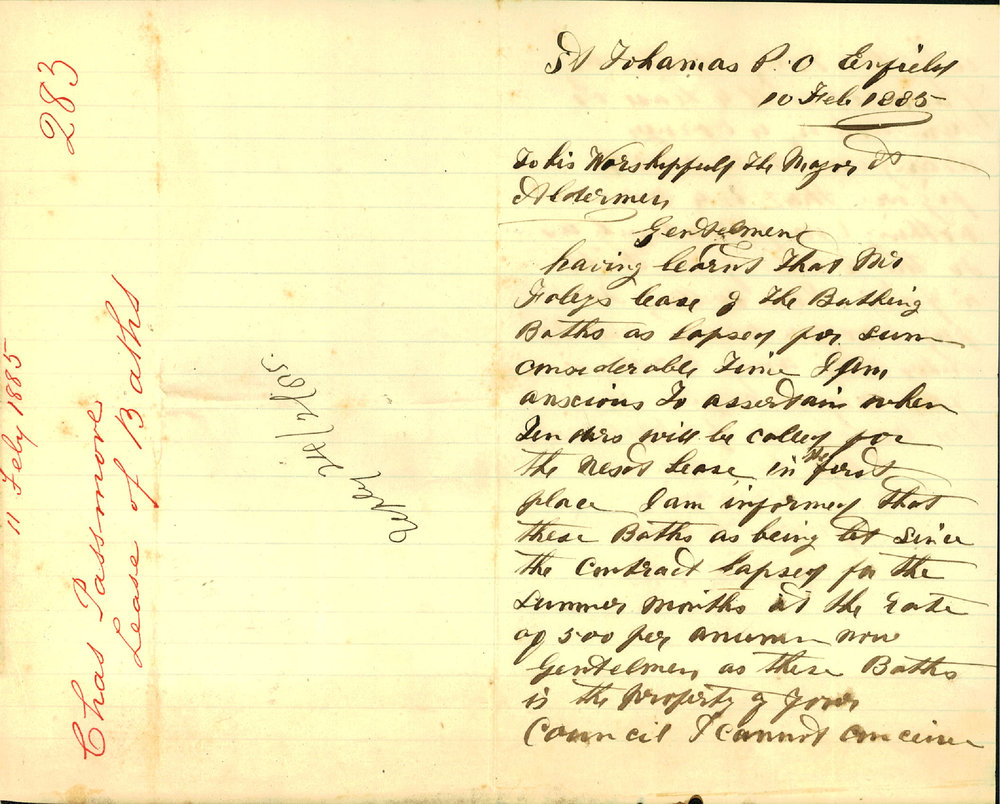 283
11 Feby 1885
Chas Passmore
Lease of Baths
24/2/85
St Tohamas P.O Enfield
10 Feb 1885
To his Worshipfull The Mayor &
Aldermen
Gentelmen
having learnt That Mr
Foleys lease of The Bathing
Baths as lapsed for sum
considerable Time I Am
anscious To assertain when
Tenders will be called for
the Nesct Lease in the first
place I am informed that
these Baths as being let since
the Contract lapsed for the
Summer Months at the Rate
of 500 per anumn now
Gentelmen as these Baths
is the Property of Your
Council I cannot conceive